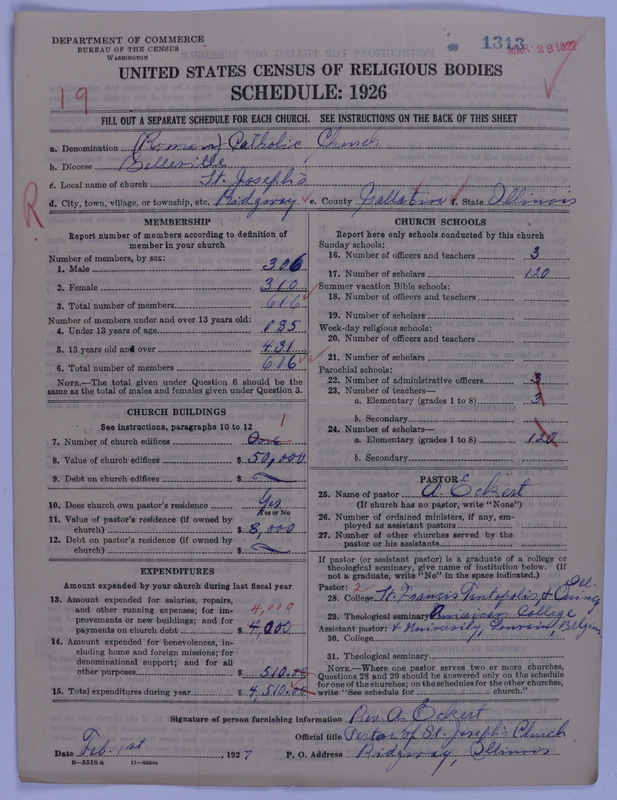 DEPARTMENT OF COMMERCE
BUREAU OF THE CENSUS
WASHINGTON
1313
MAR 28 1927
UNITED STATES CENSUS OF RELIGIOUS BODIES
SCHEDULE: 1926
19
FILL OUT A SEPARATE SCHEDULE FOR EACH CHURCH. SEE INSTRUCTIONS ON THE BACK OF THIS SHEET
a. Denomination (Roman) Catholic Church
b. Diocese Belleville
c. Local name of church St. Joseph's
d. City, town, village, or township, etc. Ridgway e. County Gallatin f. State Illinois
R
MEMBERSHIP
Report number of members according to definition of
member in your church
Number of members, by sex:
1. Male 306
2. Female 310
3. Total number of members 616
Number of members under and over 13 years old:
4. Under 13 years of age 185
5. 13 years old and over 431
6. Total number of members 616
NOTE.—The total given under Question 6 should be
the same as the total of males and females given under Question 3.
CHURCH BUILDINGS
See instructions, paragraphs 10 to 12
7. Number of church edifices One 1
8. Value of church edifices $ 50,000
9. Debt on church edifices $
10. Does church own pastor's residence Yes
Yes or No
11. Value of pastor's residence (if owned by
church) $ 8,000
12. Debt on pastor's residence (if owned by
church) $
EXPENDITURES
Amount expended by your church during last fiscal year
13. Amount expended for salaries, repairs,
and other running expenses; for im- 4,000
provements or new buildings; and for
payments on church debt $ 4,000
14. Amount expended for benevolences, in-
cluding home and foreign missions; for
denominational support; and for all
other purposes $ 510.00
15. Total expenditures during year $ 4,510.00
CHURCH SCHOOLS
Report here only schools conducted by this church
Sunday schools:
16. Number of officers and teachers 3
17. Number of scholars 120
Summer vacation Bible schools:
18. Number of officers and teachers
19. Number of scholars
Week-day religious schools:
20. Number of officers and teachers
21. Number of scholars
Parochial schools:
22. Number of administrative officers 3
23. Number of teachers—
a. Elementary (grades 1 to 8) 3
b. Secondary
24. Number of scholars—
a. Elementary (grades 1 to 8) 120
b. Secondary
PASTOR
25. Name of pastor A. Eckert
(If church has no pastor, write "None")
26. Number of ordained ministers, if any, em-
ployed as assistant pastors
27. Number of other churches served by the
pastor or his assistants
If pastor (or assistant pastor) is a graduate of a college or
theological seminary, give name of institution below. (If
not a graduate, write "No" in the space indicated.)
Pastor: 2
28. College St. Francis Teutopolis & Quincy Ill.
29. Theological seminary American College
Assistant pastor: & University, Louvain, Belgium
30. College
31. Theological seminary
NOTE.—Where one pastor serves two or more churches,
Questions 28 and 29 should be answered only on the schedule
for one of the churches; on the schedules for the other churches,
write "See schedule for church."
Signature of person furnishing information Rev. A. Eckert
Official title Pastor of St. Joseph's Church
Date Feb. 1st, 1927 P. O. Address Ridgway, Illinois
8—5518a 11—9034a